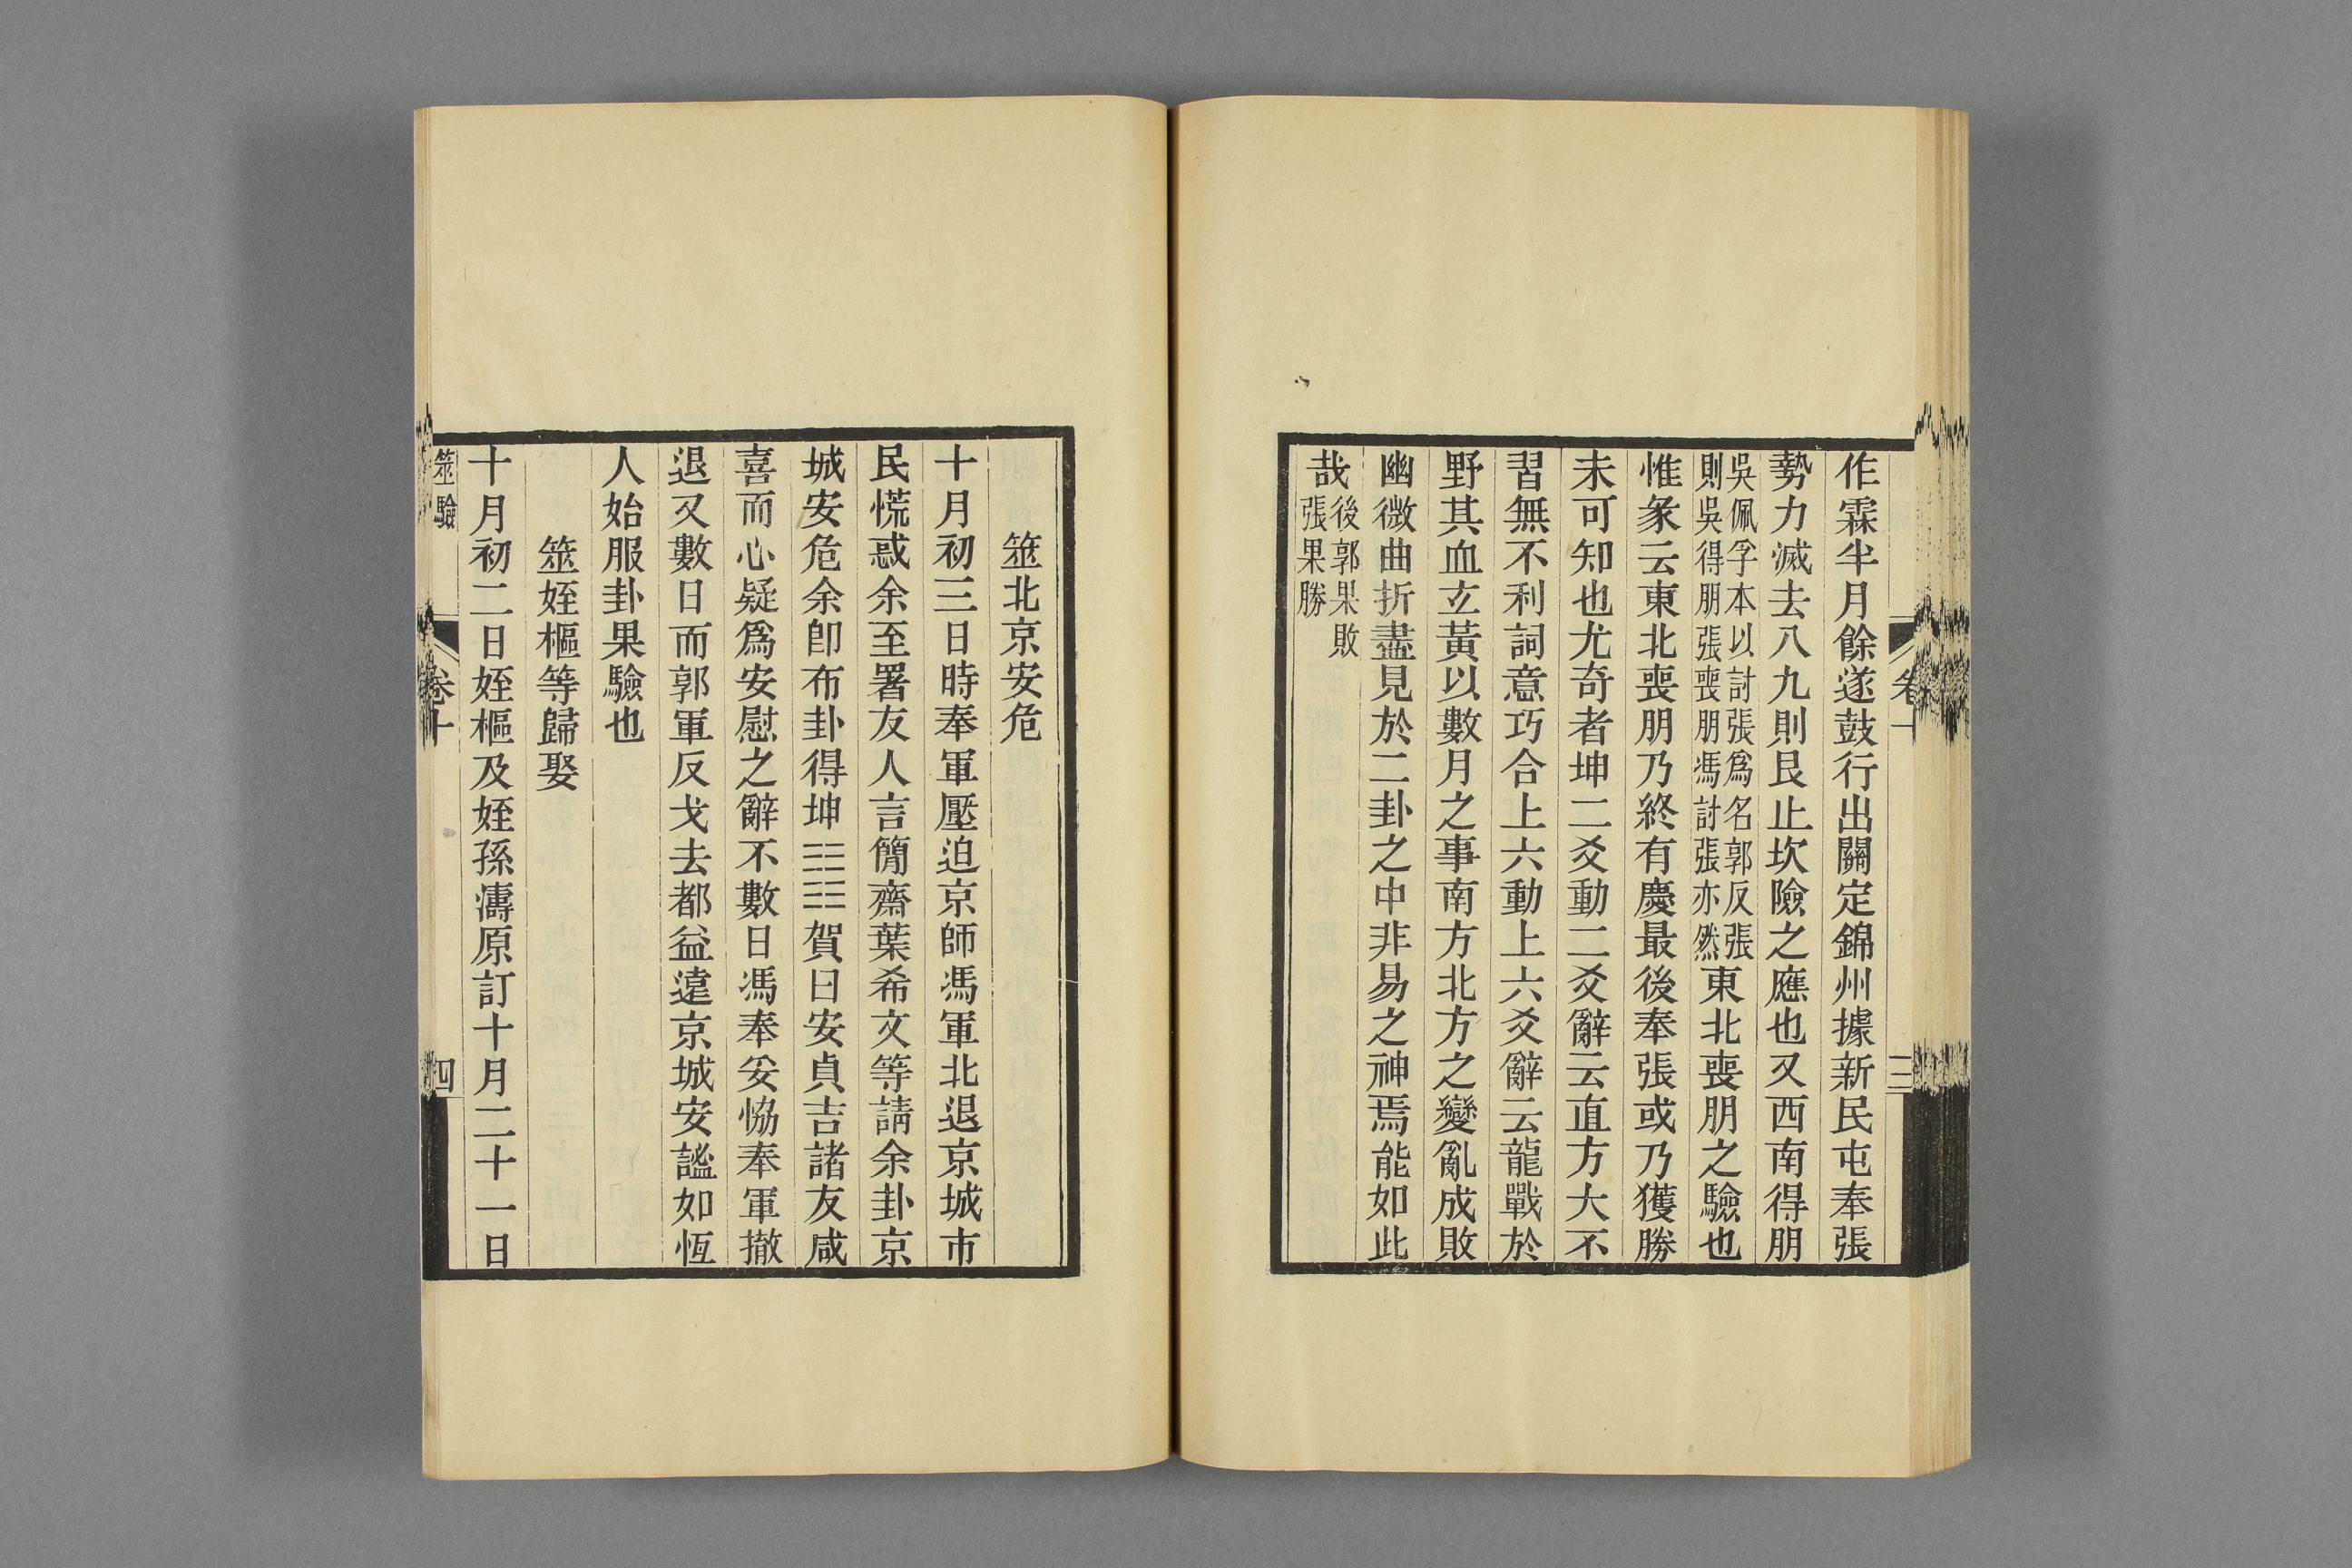 作霖半月餘遂鼓行出關定錦州據新民屯奉張
勢力滅去八九則艮止坎險之應也又西南得朋
吳佩孚本以討張爲名郭反張
則吳得朋張喪朋馮討張亦然
東北喪朋之驗也
惟彖云東北喪朋乃終有慶最後奉張或乃獲勝
未可知也尤奇者坤二爻動二爻辭云直方大不
習無不利詞意巧合上六動上六爻辭云龍戰於
野其血玄黃以數月之事南方北方之變亂成敗
幽微曲折盡見於二卦之中非易之神焉能如此
哉
後郭果敗
張果勝
卷十
三
筮北京安危
十月初三日時奉軍壓迫京師馮軍北退京城市
民慌惑余至署友人言簡齋葉希文等請余卦京
城安危余卽布卦得坤☷☷賀曰安貞吉諸友咸
喜而心疑爲安慰之辭不數日馮奉妥恊奉軍撤
退又數日而郭軍反戈去都益遠京城安謐如恆
人始服卦果驗也
筮姪樞等歸娶
十月初二日姪樞及姪孫濤原訂十月二十一日
筮驗
卷十
四